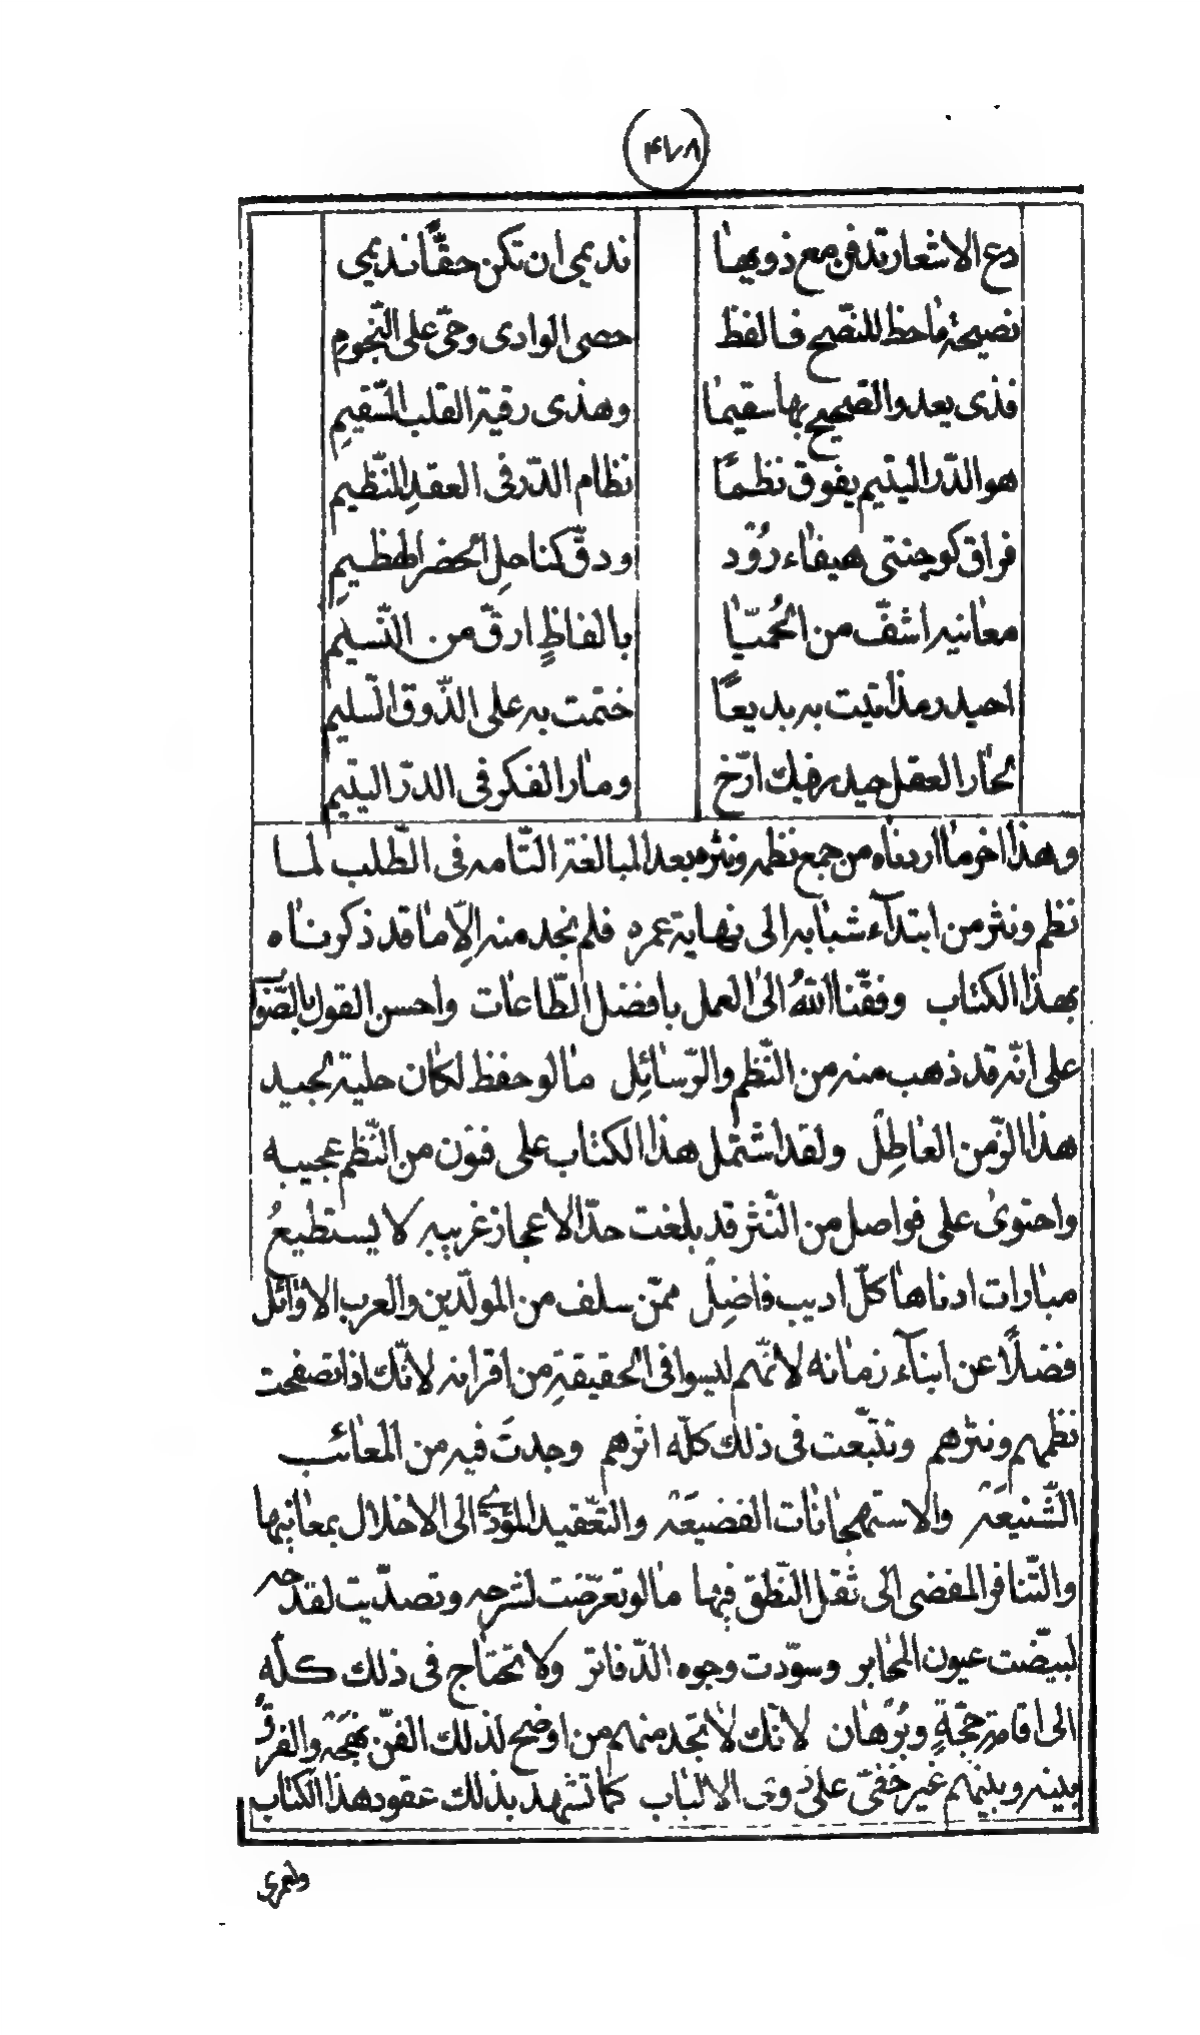 ۴۷۸
دع الاشعار تدفن مع ذويها نديمي ان تكن حقًّا نديمي
نصيحة ماحظ للنصّح فالفظ حصى الوادى وحيّ على النّجومِ
فذى يعدو الصّحيح بها سقيما وهذى رقية القلب السّقيمِ
هو الدّر اليتيم يفوق نظمًا نظام الدّر فى العقدِ النّظيم
فراق كوجنتى هيفاء رُوْد ودقّ كناحلِ الخصر الهظيمِ
معانيه اشفّ من الحُميّا بالفاظٍ ارقّ من النّسيم
احيدر مذ اتيت به بديعًا ختمت به على الذّوق السّليم
بحار العقل حيدر فيك ارّخ ومار الفكر فى الدرّ اليتيم
وهذا اخر ما اردناه من جمع نظمه ونثره بعد المبالغة التّامه فى الطّلب لما
نظم ونثر من ابتدآء شبابه الى نهاية عمره فلم نجد منه الّا ما قد ذكرناه
بهذا الكتاب وفقّنا اللهُ الى العمل بافضل الطّاعات واحسن القول بالصّواب
على انّه قد ذهب منه من النّظم والرّسائِل ما لو حفظ لكان حلية لجيد
هذا الزّمن العاطِل ولقد اشتمل هذا الكتاب على فنون من النّظم عجيبه
واحتوى على فواصل من النّثر قد بلغت حدّ الاعجاز غريبه لا يستطيعُ
مبارات ادناها كلّ اديب فاضِل ممّن سلف من المولّدين والعرب الاوائل
فضلًا عن ابنآء زمانه لانّهم ليسوا فى الحقيقةِ من اقرانه لانّك اذا تصفحت
نظمهم ونثرهم وتتبّعت فى ذلك كلّه اثرهم وجدتَ فيه من المعائب
الشّنيعَة والاستهجانات الفضيعَة والتّعقيد المؤدّي الى الاخلال بمعانيها
والتّنافر المفضى الى ثقل النّطق فيها ما لو تعرّضت لشرحه وتصدّيت لقدحه
لبيّضت عيون المحابر وسوّدت وجوه الدّفاتر ولا تحتاج فى ذلك كلّه
الى اقامة حجّةٍ وبُرْهان لانّك لا تجد منهم من اوضح لذلك الفنّ نهجَهْ والفرقُ
بينه وبينهم غير خفىّ على ذوى الالباب كما تشهد بذلك عقود هذا الكتاب
ولعمري